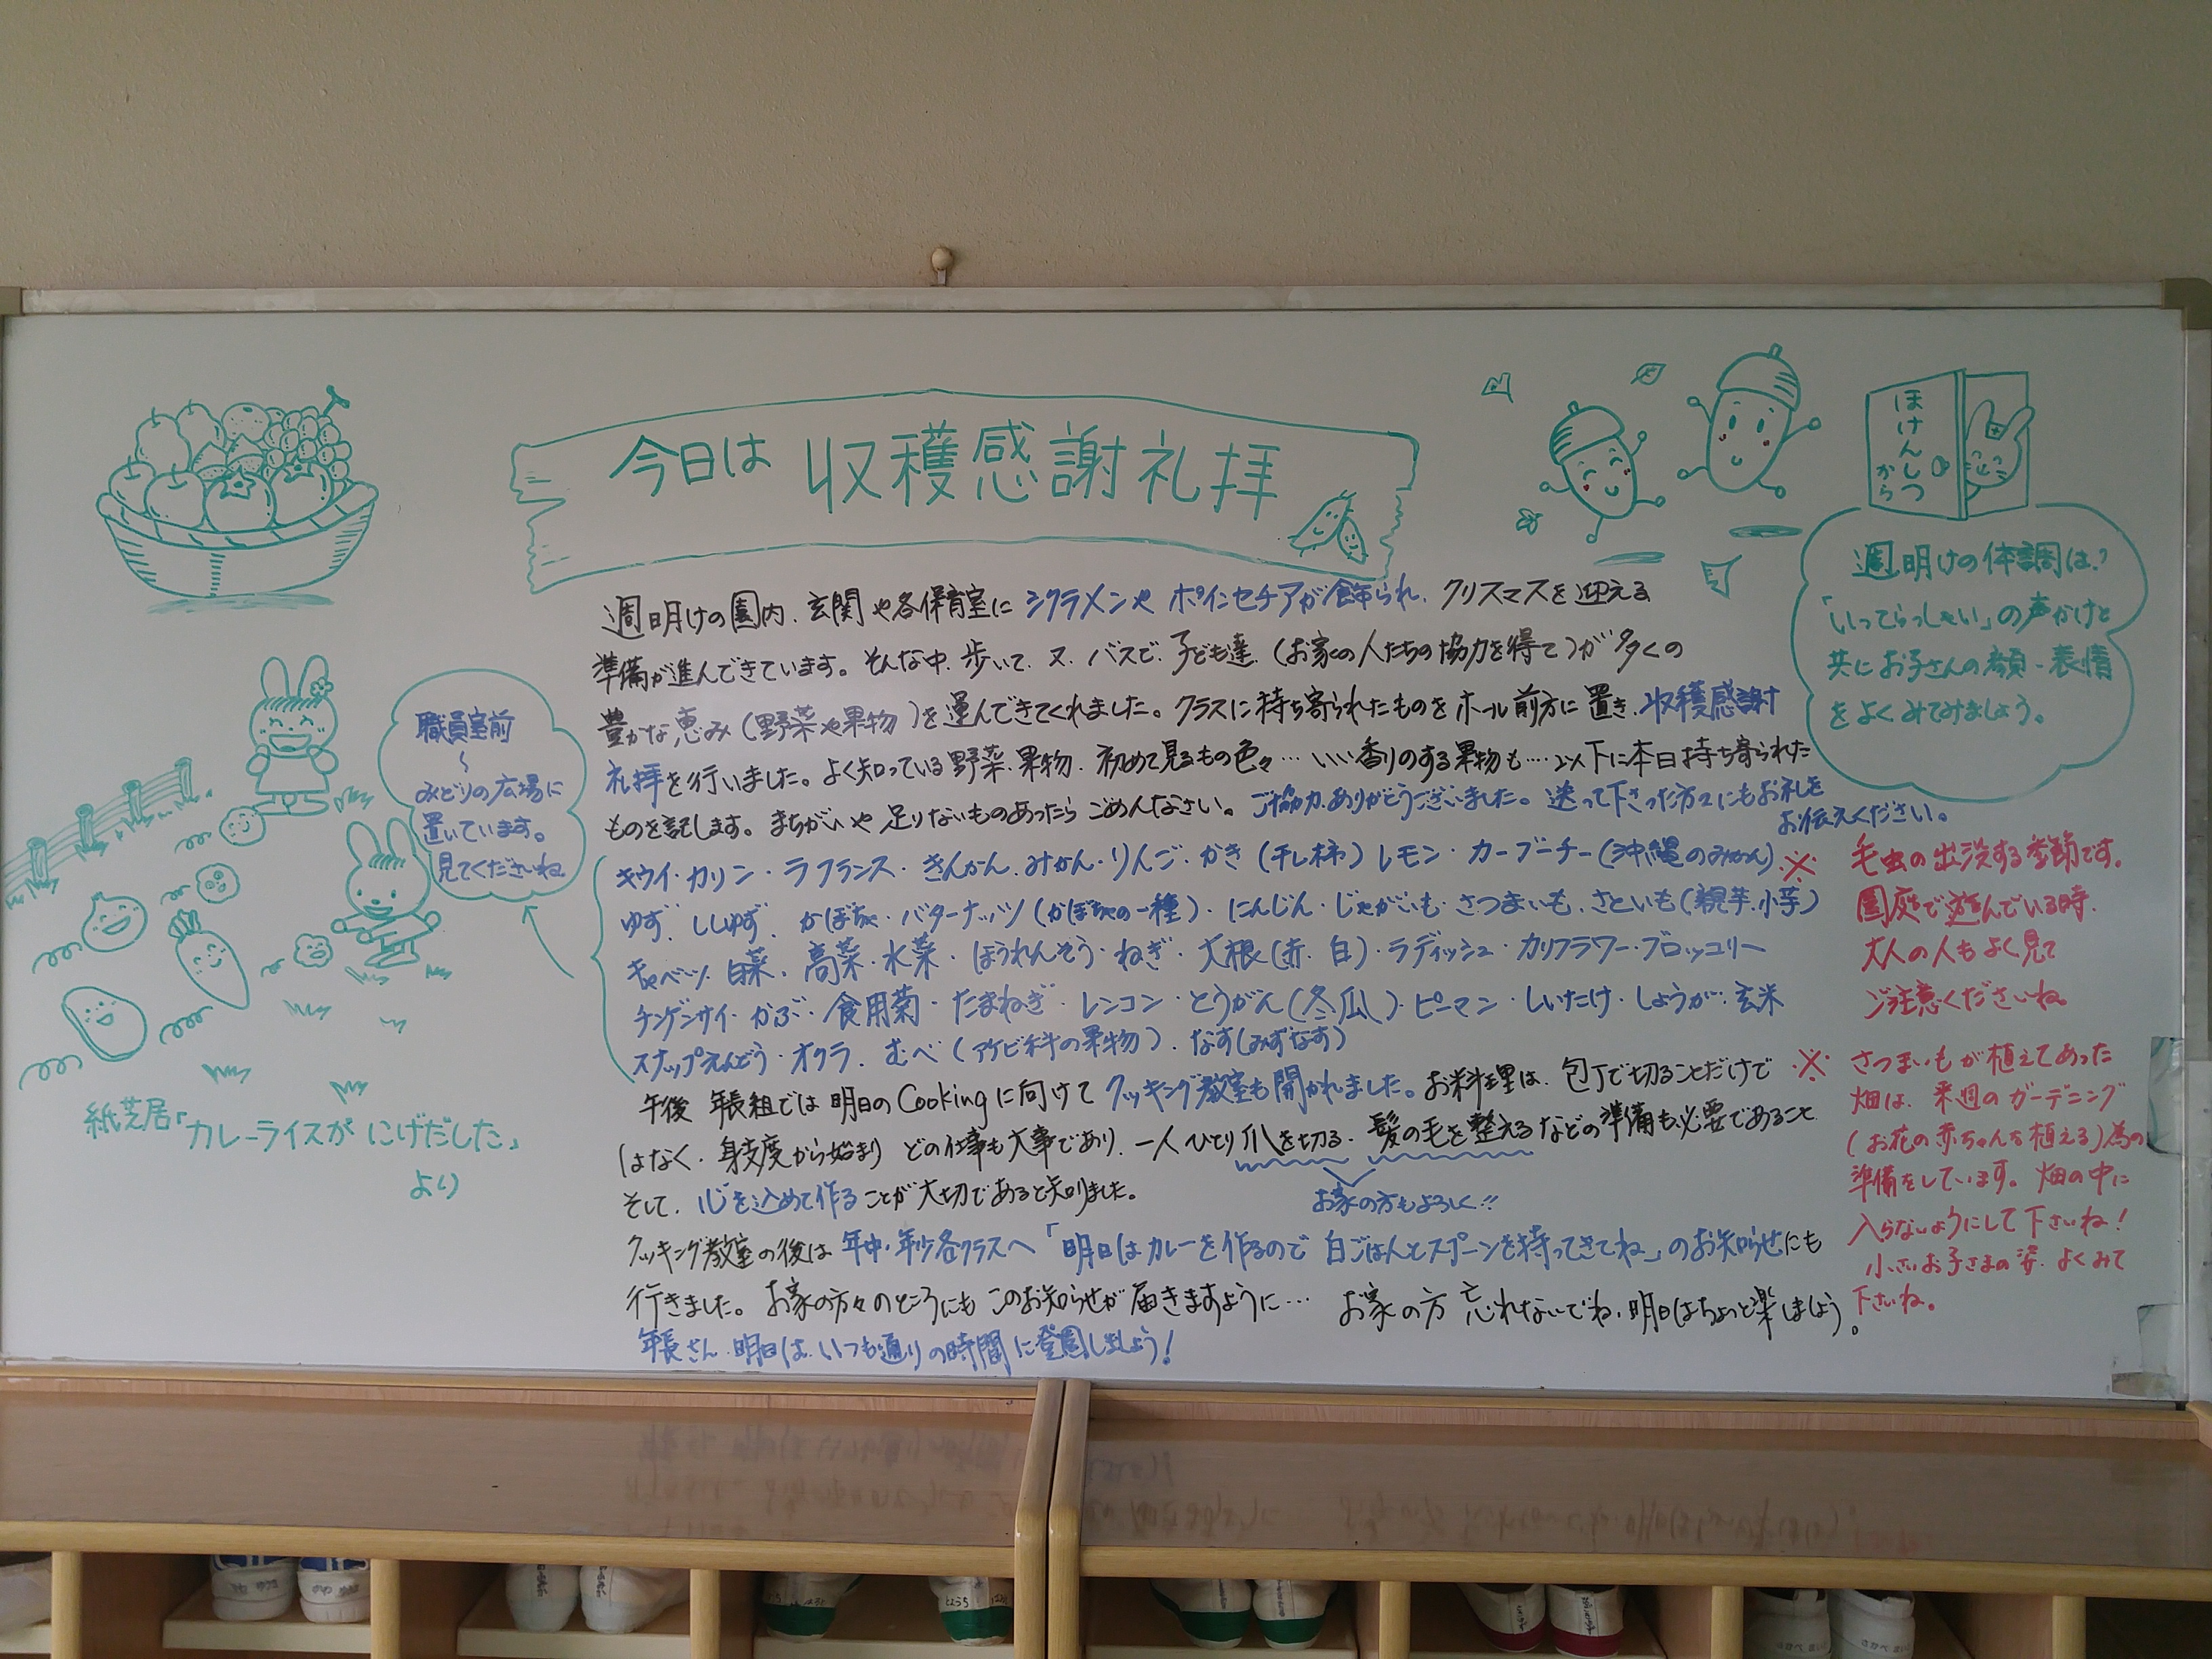 今日は 収穫感謝礼拝
ほけんしつ
から
週明けの体調は?
「いってらっしゃい」の声かけと
共にお子さんの顔・表情
をよくみてみましょう。
週明けの園内、玄関や各保育室に シクラメンや ポインセチアが飾られ、クリスマスを迎える
準備が進んできています。そんな中、歩いて、又、バスで、子ども達、(お家の人たちの協力を得て)が多くの
豊かな恵み(野菜や果物)を運んできてくれました。クラスに持ち寄られたものをホール前方に置き、収穫感謝
礼拝を行いました。よく知っている野菜・果物、初めて見るもの色々… いい香りのする果物も…・以下に本日持ち寄られた
ものを記します。まちがいや 足りないものあったら ごめんなさい。ご協力ありがとうございました。送って下さった方々にもお礼を
お伝えください。
キウイ・カリン・ラフランス・きんかん・みかん・りんご・かき(干し柿)レモン・カーブーチー(沖縄のみかん)
ゆず、ししゆず、かぼちゃ・バターナッツ(かぼちゃの一種)・にんじん・じゃがいも・さつまいも、さといも(親芋、小芋)
キャベツ、白菜、高菜・水菜・ほうれんそう・ねぎ・大根(赤、白)・ラディッシュ・カリフラワー・ブロッコリー
チンゲンサイ・かぶ・食用菊・たまねぎ・レンコン・とうがん(冬瓜)・ピーマン・しいたけ・しょうが・玄米
スナップえんどう・オクラ、むべ(アケビ科の果物)、なす(みずなす)
午後 年長組では 明日のCookingに向けて クッキング教室も開かれました。お料理は、包丁で切ることだけで
はなく、身支度から始まり どの仕事も大事であり、一人ひとり爪を切る、髪の毛を整えるなどの準備も必要であること
そして、心を込めて作ることが大切であると知りました。
お家の方もよろしく!!
クッキング教室の後は 年中・年少各クラスへ「明日はカレーを作るので 白ごはんとスプーンを持ってきてね」のお知らせにも
行きました。お家の方々のところにも このお知らせが届きますように… お家の方 忘れないでね、明日はちょっと楽しましょう。
年長さん 明日は、いつも通りの時間に登園しましょう!
職員室前
〜
みどりの広場に
置いています。
見てくださいね
紙芝居「カレーライスが にげだした」
より
※ 毛虫の出没する季節です。
園庭で遊んでいる時、
大人の人もよく見て
ご注意くださいね。
※ さつまいもが植えてあった
畑は、来週のガーデニング
(お花の赤ちゃんを植える)為の
準備をしています。畑の中に
入らないようにして下さいね!
小さいお子さまの姿、よくみて
下さいね。